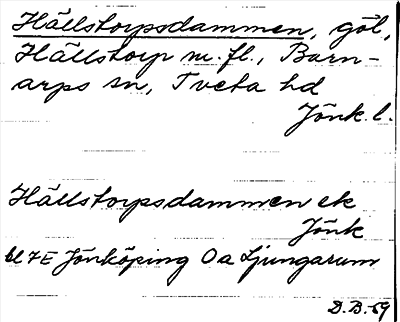 Hällstorpsdammen, göl,
Hällstorp m. fl., Barn-
arps sn, Tveta hd
Jönk. l.
Hällstorpsdammen ek
Jönk
bl 7E Jönköping 0a Ljungarum
D.B. 69